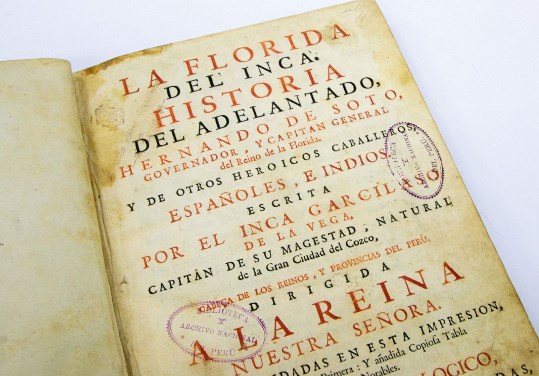 LA FLORIDA
DEL INCA.
HISTORIA
DEL ADELANTADO,
HERNANDO DE SOTO,
GOVERNADOR, Y CAPITAN GENERAL
del Reino de la Florida.
Y DE OTROS HEROICOS CABALLEROS,
ESPAÑOLES, E INDIOS.
ESCRITA
POR EL INCA GARCILASO
DE LA VEGA,
CAPITÁN DE SU MAGESTAD, NATURAL
de la Gran Ciudad del Cozco,
CABEÇA DE LOS REINOS, Y PROVINCIAS DEL PERÚ.
DIRIGIDA
A LA REINA
NUESTRA SEÑORA.
DADAS EN ESTA IMPRESION,
Primera: Y añadida Copiosa Tabla
Notables.
OLOGICO,
BIBLIOTECA
Y
ARCHIVO NACIONAL
PERÚ